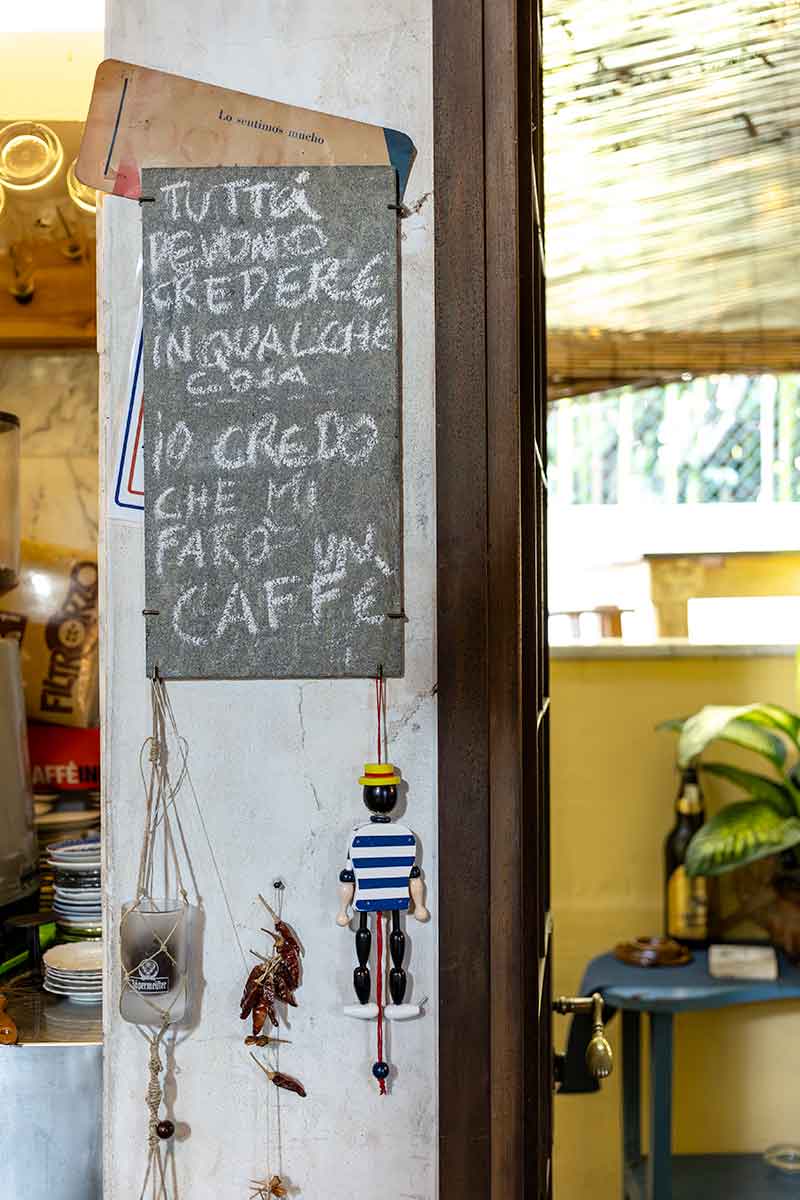 Lo sentimos mucho
TUTTi
DEVONO
CREDERE
IN QUALCHE
COSA
iO CREDO
CHE Mi
FARÒ UN
CAFFÈ
FILTRO
AFFÈIN
Jägermeister